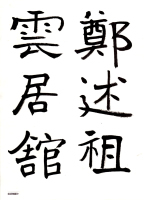 鄭述祖
雲居舘